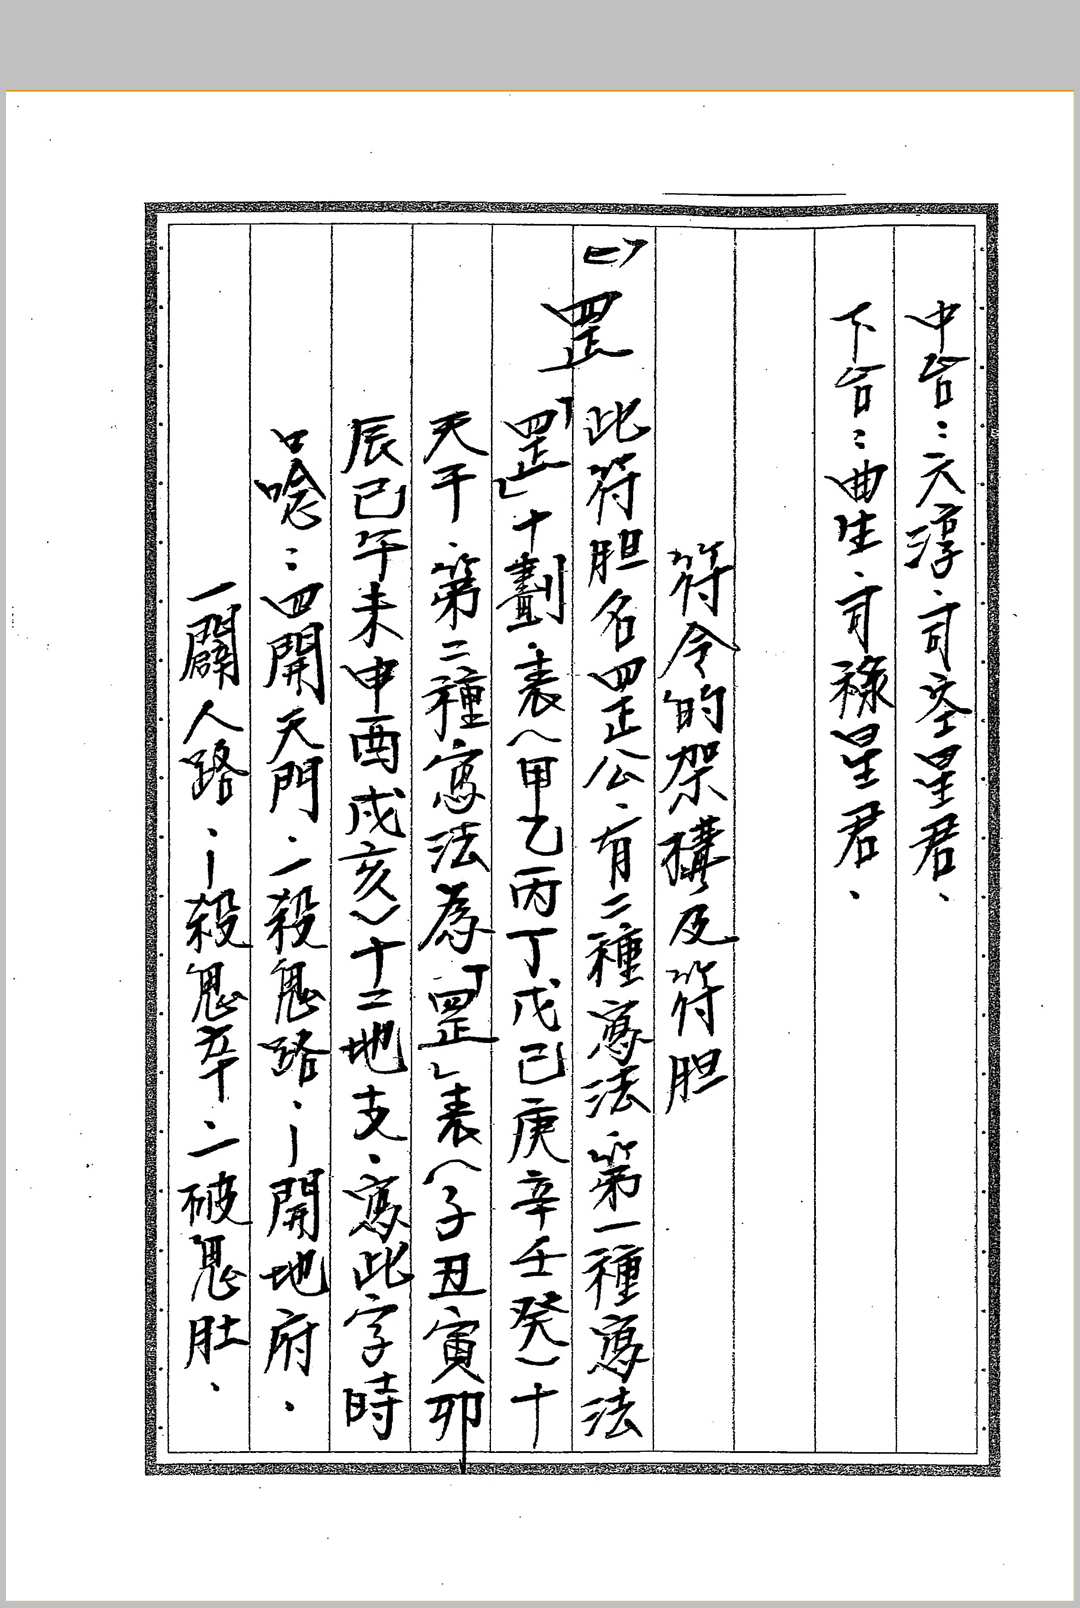 中台：六淳．司空星君、
下台：曲生．司祿星君、
符令的架構及符胆
㈡罡 此符胆名四正公．有二種寫法．第一種寫法
「罡」十劃．表（甲乙丙丁戊己庚辛壬癸）十
天干．第二種寫法為「罡」表（子丑寅卯
辰巳午未申酉戌亥）十二地支．寫此字時
口唸：四開天門．一殺鬼路．丨開地府．
一闢人路．丨殺鬼卒二破鬼肚．